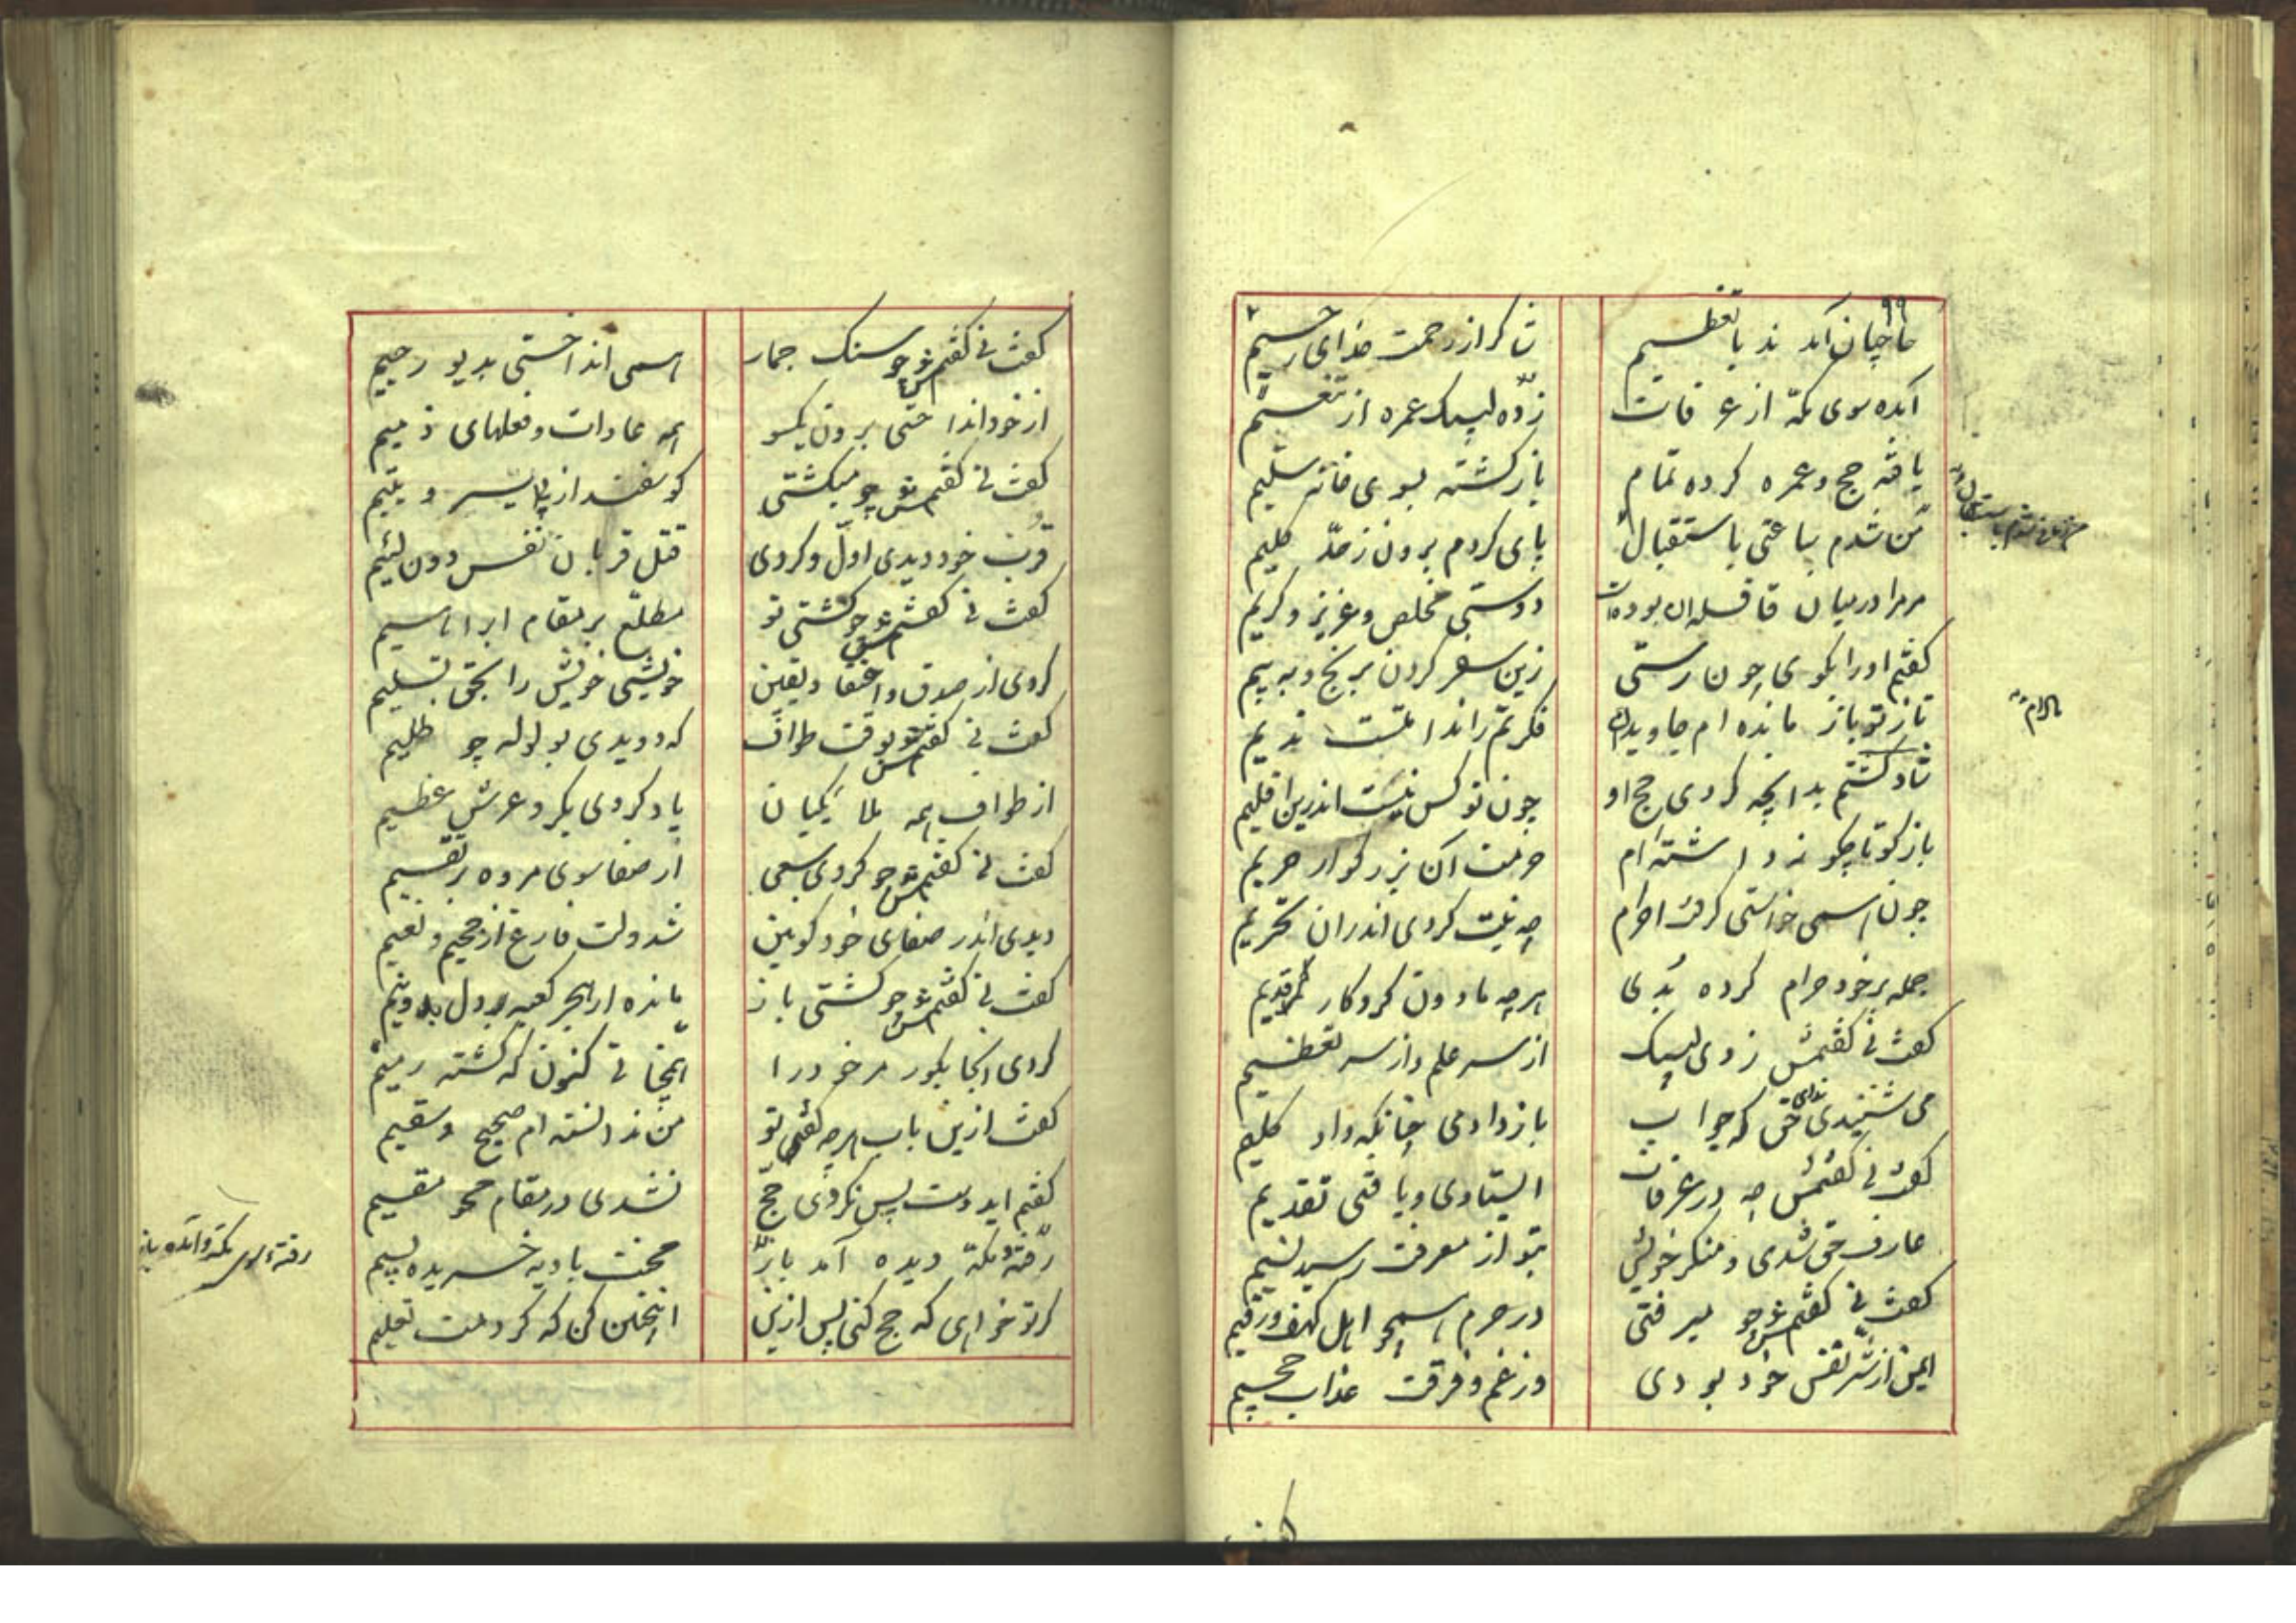 حاجیان آمدند با تعظیم
شاکر از رحمت خدای رحیم
آمده سوی مکّه از عرفات
زده لبیک عمره از تنعیم
یافته حج و عمره کرده تمام
بازگشته بسوی خانه سلیم
من شدم ساعتی باستقبال
پای کردم برون ز حدّ کلیم
مرمرا در میان قافله
دوستی مخلص و عزیز و کریم
کفتم او را بکوی چون رستی
زین سفر کردن برنج و به بیم
تا ز تو باز مانده ام جاویدان
فکرتم را ندامتست ندیم
شاد کشتم بدانچه کردی حج او
چون تو کس نیست اندرین اقلیم
باز کو تا چکونه داشته ام
حرمت آن بزرکوار حریم
چون همی خواستی کرفت احرام
چه نیت کردی اندران تحریم
جمله بر خود حرام کرده بُدی
هرچه مادون کردکار قدیم
کفت نی کفتمش زدی لبیک
از سر علم و از سر تعظیم
می شنیدی ندای حق که جواب
باز دادی چنانکه داد کلیم
کفت نی کفتمش چه در عرفات
ایستادی و یافتی تقدیم
عارف حق شدی و منکر خویش
بتو از معرفت رسید نسیم
کفت نی کفتمش چو میرفتی
در حرم همچو اهل کهف و رقیم
ایمن از شر نفس خود بودی
وز غم و فرقت عذاب جحیم
کفت نی کفتمش چو سنک جمار
همی انداختی بدیو رجیم
از خود انداختی برون یکسو
همه عادات و فعلهای ذمیم
کفت نی کفتمش چو میکشتی
کوسفند از پی یسیر و یتیم
قرب خود دیدی اوّل و کردی
قتل قربان نفس دون لئیم
کفت نی کفتمش چو کشتی تو
مطلّع بر مقام ابراهیم
کردی از صدق و اعتقاد و یقین
خویشی خویش را بحق تسلیم
کفت نی کفتمش بوقت طواف
که دویدی بولوله چو ظلیم
از طواف همه ملائکیان
یاد کردی بکرد عرش عظیم
کفت نی کفتمش چو کردی سعی
از صفا سوی مروه بر تقسیم
دیدی اندر صفای خود کونین
شد دلت فارغ از جحیم و نعیم
کفت نی کفتمش چو کشتی باز
مانده از هجر کعبه دل بدو نیم
کردی انجا بکور مر خود را
کنون که کشته رمیم
کفت ازین باب هرچه کفتی تو
من ندانسته ام صحیح و سقیم
کفتم ایدوست پس نکردی حج
نشدی در مقام محو مقیم
رفته مکّه دیده آمد باز
محنت بادیه خریده بسیم
کر تو خواهی که حج کنی پس ازین
اینچنین کن که کردمت تعلیم
رفته و مکه آمده باز